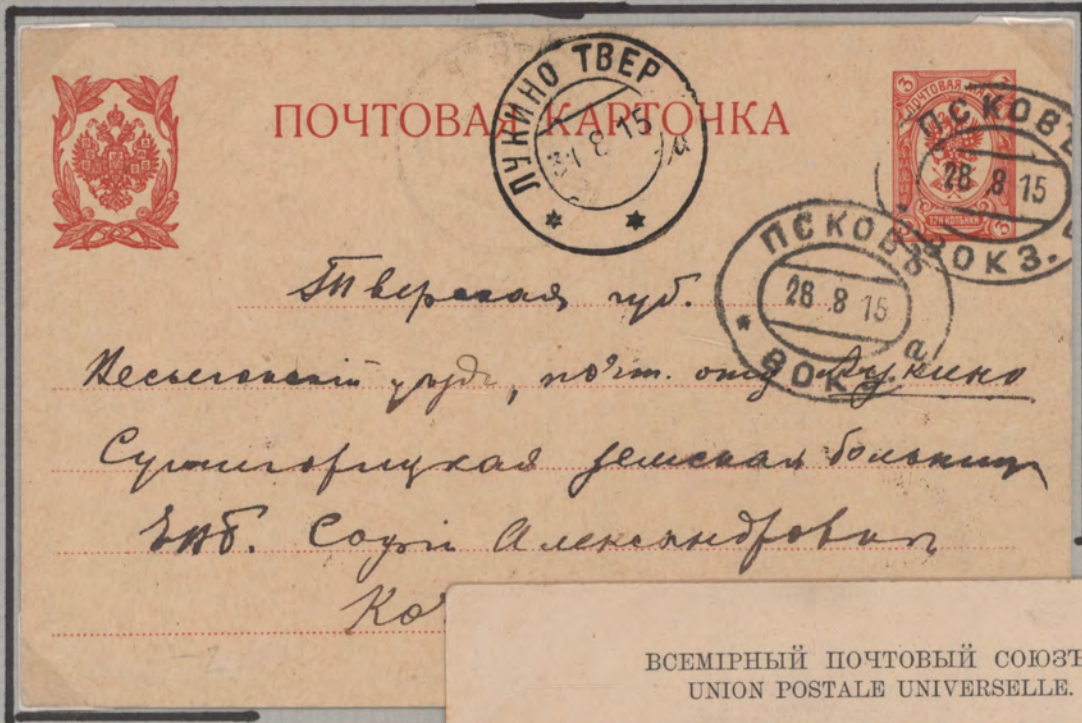 ПОЧТОВАЯ КАРТОЧКА
ЛУКИНО ТВЕР
8 15
а
3 3
ПОЧТОВАЯ
ТРИ КОПѢЙКИ
3 3
ПСКОВЪ
28 8 15
ВОКЗ.
ПСКОВЪ
28 8 15
ВОКЗ.
а
Тверская губ.
Весьегонскій уѣздъ, почт. отд. Лукино
Сушигорицкая земская больница
ЕВБ. Софіи Александровнѣ
ВСЕМІРНЫЙ ПОЧТОВЫЙ СОЮЗЪ
UNION POSTALE UNIVERSELLE.